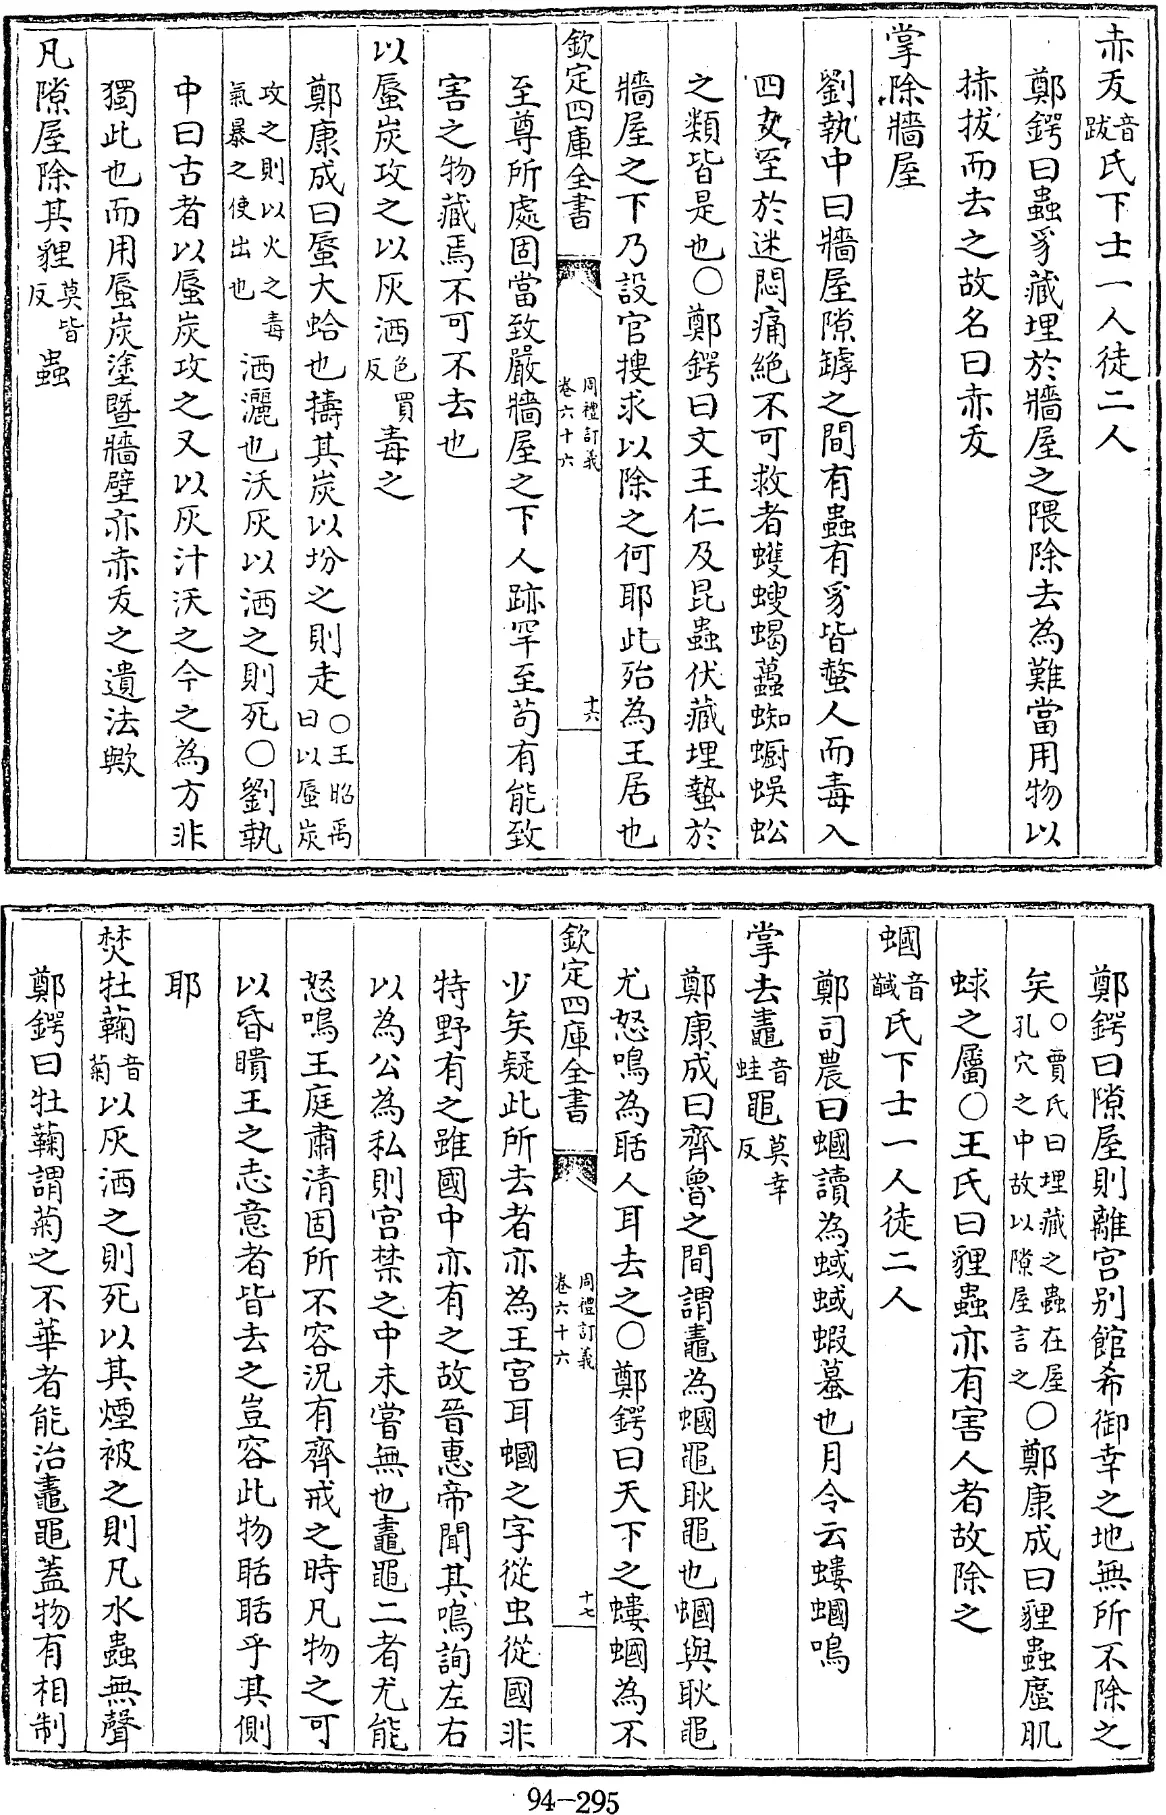 赤犮音跋氏下士一人徒二人
鄭鍔曰蟲豸藏埋於牆屋之隈除去為難當用物以
捇拔而去之故名曰赤犮
掌除牆屋
劉執中曰牆屋隙罅之間有蟲有豸皆螫人而毒入
四支至於迷悶痛絶不可救者蠼螋蝎蠆蜘蟵蜈蚣
之類皆是也○鄭鍔曰文王仁及昆蟲伏藏埋蟄於
牆屋之下乃設官搜求以除之何耶此殆為王居也
欽定四庫全書 周禮訂義卷六十六 十六
至尊所處固當致嚴牆屋之下人跡罕至茍有能致
害之物藏焉不可不去也
以蜃炭攻之以灰洒色買反毒之
鄭康成曰蜃大蛤也擣其炭以坋之則走○王昭禹曰以蜃炭
攻之則以火之毒氣暴之使出也洒灑也沃灰以洒之則死○劉執
中曰古者以蜃炭攻之又以灰汁沃之今之為方非
獨此也而用蜃炭塗暨牆壁亦赤犮之遺法歟
凡隙屋除其貍莫皆反蟲
鄭鍔曰隙屋則離宫别館希御幸之地無所不除之
矣○賈氏曰埋藏之蟲在屋孔穴之中故以隙屋言之○鄭康成曰貍蟲䗪肌
蛷之屬○王氏曰貍蟲亦有害人者故除之
蟈音馘氏下士一人徒二人
鄭司農曰蟈讀為蜮蜮蝦蟇也月令云螻蟈鳴
掌去鼃音蛙黽莫幸反
鄭康成曰齊魯之間謂鼃為蟈黽耿黽也蟈與耿黽
尤怒鳴為聒人耳去之○鄭鍔曰天下之螻蟈為不
欽定四庫全書 周禮訂義卷六十六 十七
少矣疑此所去者亦為王宫耳蟈之字從虫從國非
特野有之雖國中亦有之故晉惠帝聞其鳴詢左右
以為公為私則宫禁之中未嘗無也鼃黽二者尤能
怒鳴王庭肅清固所不容況有齊戒之時凡物之可
以昏瞶王之志意者皆去之豈容此物聒聒乎其側
耶
焚牡蘜音菊以灰洒之則死以其煙被之則凡水蟲無聲
鄭鍔曰牡蘜謂菊之不華者能治鼃黽蓋物有相制
94-295